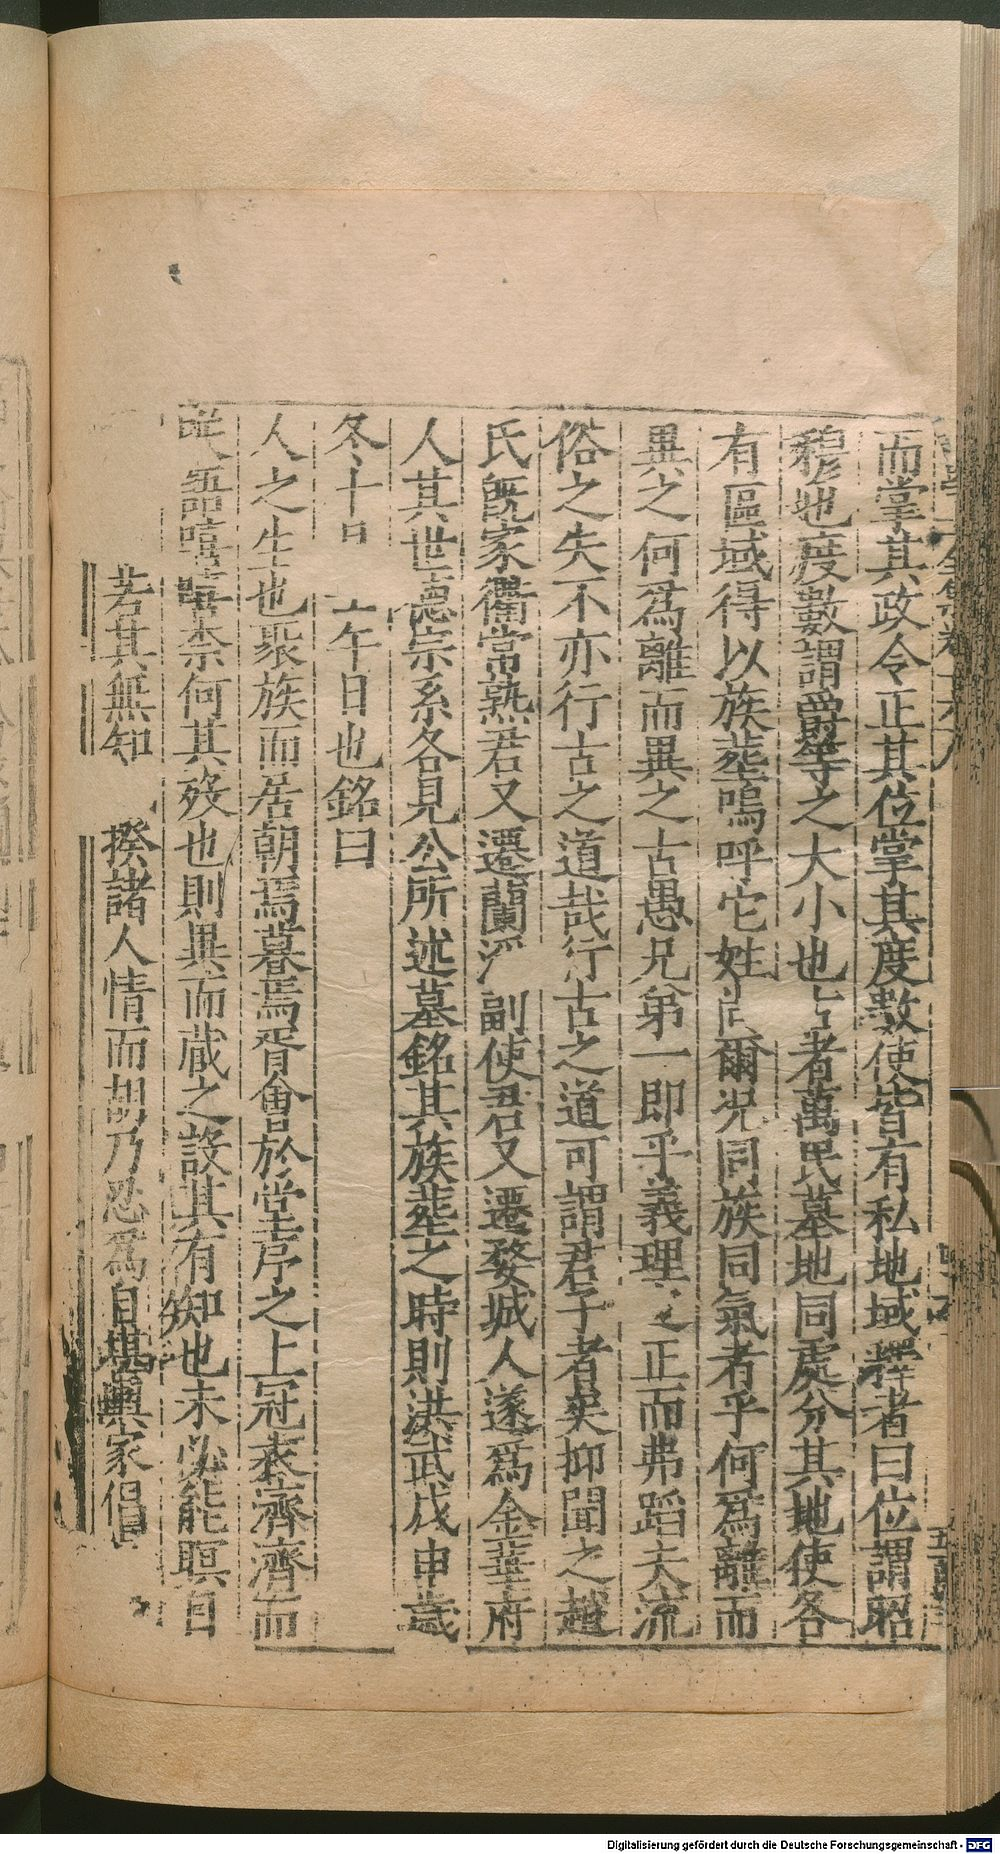 而掌其政令正其位掌其度數使皆有私地域釋者曰位謂昭
穆也度數謂爵等之大小也古者萬民墓地同處分其地使各
有區域得以族塟嗚呼它姓尚爾况同族同氣者乎何爲離而
異之何爲離而異之古愚兄弟一即乎義理之正而弗蹈夫流
俗之失不亦行古之道哉行古之道可謂君子者矣抑聞之越
氏旣家衢常熟君又遷蘭溪副使君又遷婺城人遂爲金華府
人其世德宗系各見公所述墓銘其族塟之時則洪武戊申歲
冬十 午日也銘曰
人之生也聚族而居朝焉暮焉胥會於堂序之上冠衣濟濟而
語嘻嘻柰何其歿也則異而藏之設其有知也未必能暝目
若其無知 揆諸人情而胡乃忍爲自堪輿家倡
Digitalisierung gefördert durch die Deutsche Forschungsgemeinschaft - DFG